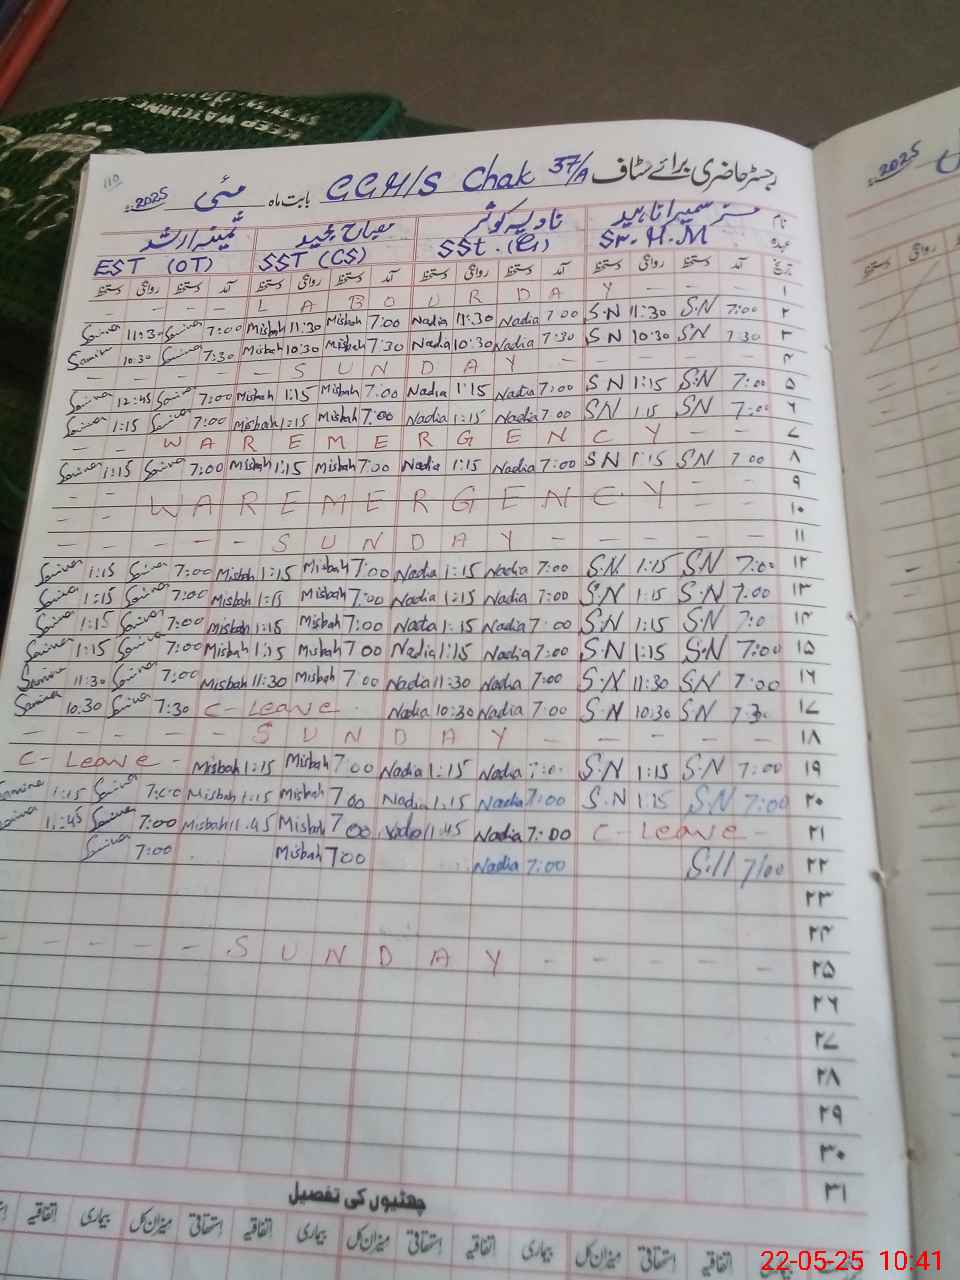 110
رجسٹر حاضری برائے سٹاف GGH/S Chak 37/A بابت ماہ مئی 2025ء
نام مسز سمیرا ناہید نادیہ کوثر مصباح مجید ثمینہ ارشد
عہدہ Sr. H.M SSt. SST (CS) EST (OT)
تاریخ آمد دستخط روانگی دستخط آمد دستخط روانگی دستخط آمد دستخط روانگی دستخط آمد دستخط روانگی دستخط
- - - - L A B O U R D A Y - - - - ۱
Samina 11:30 Samina 7:00 Misbah 11:30 Misbah 7:00 Nadia 11:30 Nadia 7:00 S.N 11:30 S.N 7:00 ۲
Samina 10:30 Samina 7:30 Misbah 10:30 Misbah 7:30 Nadia 10:30 Nadia 7:30 S N 10:30 S N 7:30 ۳
- - - - - S U N D A Y - - - - - ۴
Samina 12:45 Samina 7:00 Misbah 1:15 Misbah 7:00 Nadia 1:15 Nadia 7:00 S N 1:15 S.N 7:00 ۵
Samina 1:15 Samina 7:00 Misbah 1:15 Misbah 7:00 Nadia 1:15 Nadia 7:00 SN 1:15 SN 7:00 ۶
- - W A R E M E R G E N C Y - - ۷
Samina 1:15 Samina 7:00 Misbah 1:15 Misbah 7:00 Nadia 1:15 Nadia 7:00 SN 1:15 SN 7:00 ۸
- - W A R E M E R G E N C Y - - ۹
- - - - ۱۰
- - - - - S U N D A Y - - - - - ۱۱
Samina 1:15 Samina 7:00 Misbah 1:15 Misbah 7:00 Nadia 1:15 Nadia 7:00 S.N 1:15 S.N 7:00 ۱۲
Samina 1:15 Samina 7:00 Misbah 1:15 Misbah 7:00 Nadia 1:15 Nadia 7:00 S.N 1:15 S.N 7:00 ۱۳
Samina 1:15 Samina 7:00 Misbah 1:15 Misbah 7:00 Nadia 1:15 Nadia 7:00 S.N 1:15 S.N 7:0 ۱۴
Samina 1:15 Samina 7:00 Misbah 1:15 Misbah 7:00 Nadia 1:15 Nadia 7:00 S.N 1:15 S.N 7:00 ۱۵
Samina 11:30 Samina 7:00 Misbah 11:30 Misbah 7:00 Nadia 11:30 Nadia 7:00 S.N 11:30 S.N 7:00 ۱۶
Samina 10:30 Samina 7:30 C-Leave Nadia 10:30 Nadia 7:00 S.N 10:30 S.N 7:3 ۱۷
- - - - - S U N D A Y - - - - - ۱۸
C-Leave - Misbah 1:15 Misbah 7:00 Nadia 1:15 Nadia 7:00 S.N 1:15 S.N 7:00 ۱۹
Samina 1:15 Samina 7:00 Misbah 1:15 Misbah 7:00 Nadia 1.15 Nadia 7:00 S.N 1:15 S.N 7:00 ۲۰
11:45 Samina 7:00 Misbah 11.45 Misbah 7:00 Nadia 11:45 Nadia 7:00 C-Leave - ۲۱
Samina 7:00 Misbah 7:00 Nadia 7:00 S.N 7:00 ۲۲
۲۳
۲۴
- - - - - S U N D A Y - - - - - ۲۵
۲۶
۲۷
۲۸
۲۹
۳۰
۳۱
چھٹیوں کی تفصیل
اتفاقیہ استحقاقی میزان کل بیماری اتفاقیہ استحقاقی میزان کل بیماری اتفاقیہ استحقاقی میزان کل بیماری اتفاقیہ
2025
روانگی
دستخط
22-05-25 10:41